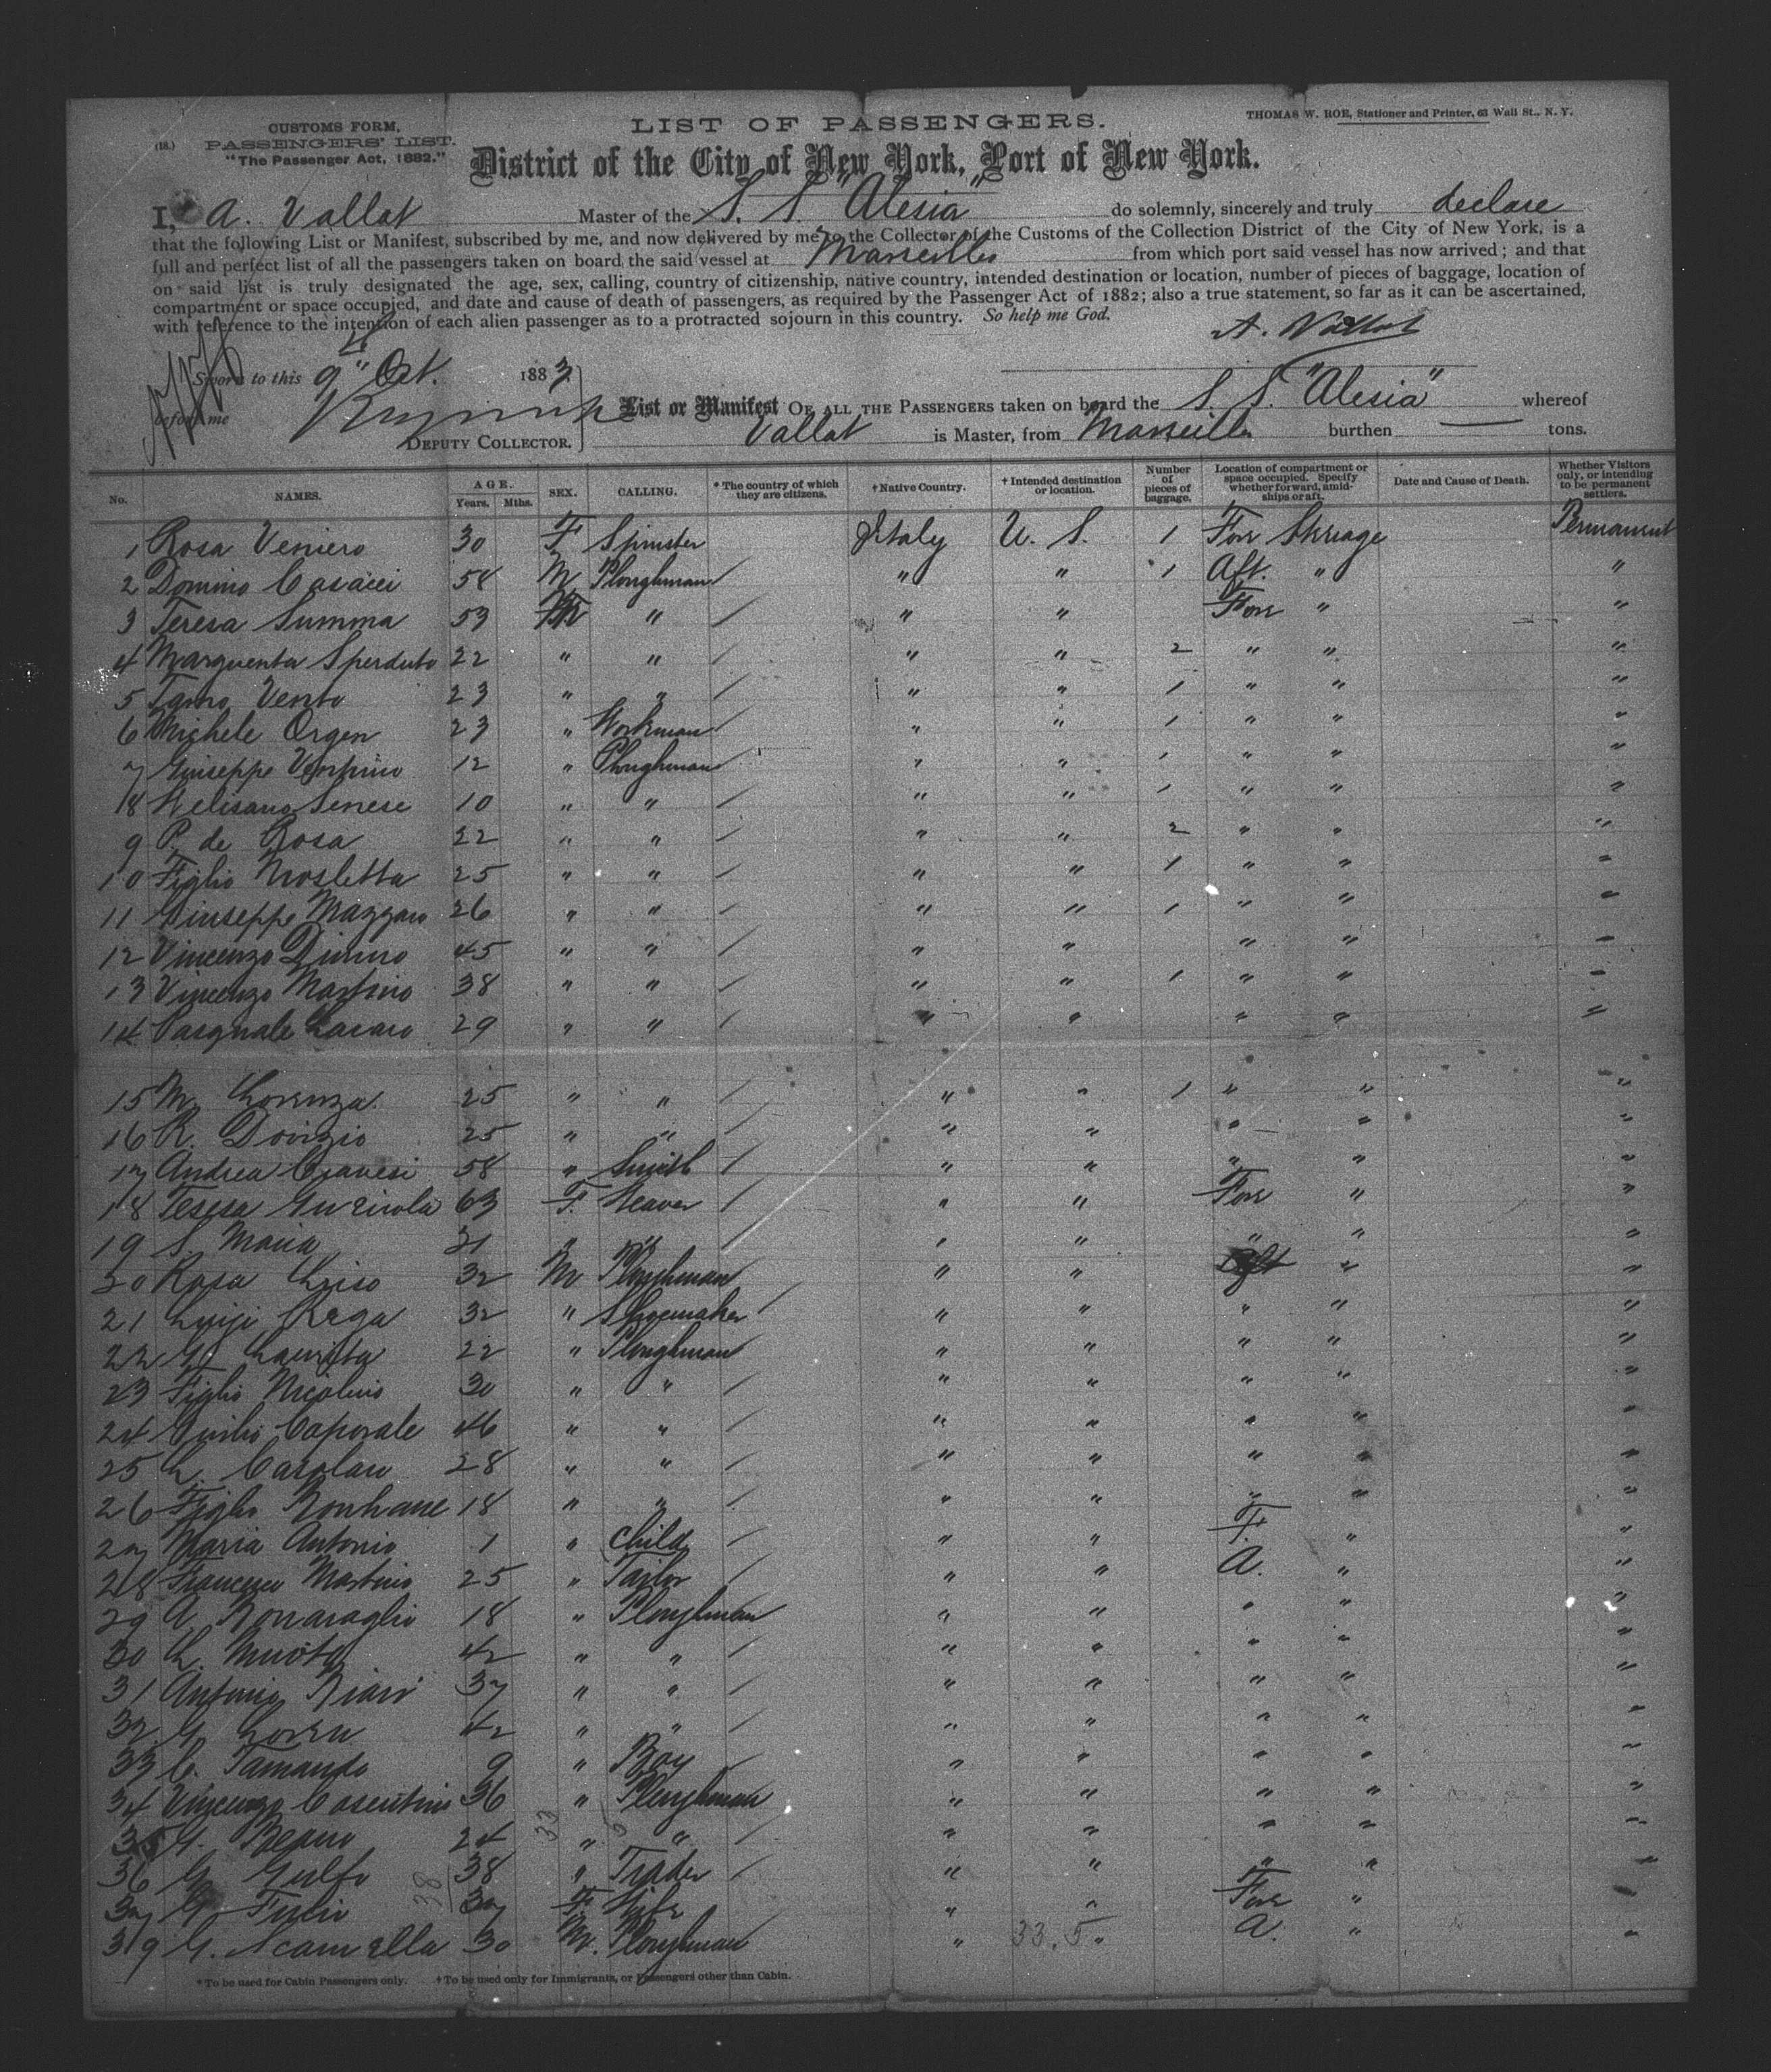 (18.) CUSTOMS FORM, PASSENGERS' LIST. "The Passenger Act, 1882."
LIST OF PASSENGERS.
THOMAS W. ROE, Stationer and Printer, 63 Wall St., N. Y.
District of the City of New York, Port of New York.
I, A. Vallat Master of the S. S. "Alesia" do solemnly, sincerely and truly declare
that the following List or Manifest, subscribed by me, and now delivered by me to the Collector of the Customs of the Collection District of the City of New York, is a
full and perfect list of all the passengers taken on board the said vessel at Marseilles from which port said vessel has now arrived; and that
on said list is truly designated the age, sex, calling, country of citizenship, native country, intended destination or location, number of pieces of baggage, location of
compartment or space occupied, and date and cause of death of passengers, as required by the Passenger Act of 1882; also a true statement, so far as it can be ascertained,
with reference to the intention of each alien passenger as to a protracted sojourn in this country. So help me God.
A. Vallat
Sworn to this 9" Oct. 1883
before me
List or Manifest OF ALL THE PASSENGERS taken on board the S. S. "Alesia" whereof
DEPUTY COLLECTOR. Vallat is Master, from Marseilles burthen — tons.
No. NAMES. AGE. Years. Mths. SEX. CALLING. * The country of which they are citizens. † Native Country. † Intended destination or location. Number of pieces of baggage. Location of compartment or space occupied. Specify whether forward, amidships or aft. Date and Cause of Death. Whether Visitors only, or intending to be permanent settlers.
1 Rosa Veniero 30 F Spinster Italy U. S. 1 For Steerage Permanent
2 Domino Casacci 58 M Ploughman / " " 1 Aft. " "
3 Teresa Summa 53 F " / " " For " "
4 Marguenta Sperduto 22 " " / " " 2 " " "
5 Vento 23 " " / " " 1 " " "
6 Michele Orgen 23 " Workman / " " 1 " " "
7 Giuseppe 12 " Ploughman / " " 1 " " "
8 Senese 10 " " / " " 1 " " "
9 P. de Rosa 22 " " / " " 2 " " "
10 Figlio Mosletta 25 " " / " " 1 " " "
11 Giuseppe Mazzaro 26 " " / " " 1 " " "
12 Vincenzo 45 " " / " " " " "
13 Vincenzo Martino 38 " " / " " 1 " " "
14 Pasquale Lazaro 29 " " / " " " " "
15 M. Lorenza 25 " " / " " 1 " " "
16 R. Dorizio 25 " " / " " " " "
17 Andrea Cravesi 58 " Smith / " " " " "
18 Teresa 63 F. Weaver / " " For " "
19 S. Maria 31 " " " " " " "
20 Rosa Criso 32 M Ploughman / " " Aft " "
21 Luigi Raga 32 " Shoemaker / " " " " "
22 G. Lauritta 22 " Ploughman " " " " "
23 Figlio Nicolino 30 " " / " " " " "
24 Caporale 46 " " / " " " " "
25 L. Carolau 28 " " / " " " " "
26 Figlio 18 " " / " " " " "
27 Maria Antonio 1 " Child / " " F. " "
28 Francesco Martino 25 " Tailor / " " A. " "
29 A. 18 " Ploughman " " " " "
30 L. 42 " " / " " " " "
31 Antonio 37 " " / " " " " "
32 G. 42 " " / " " " " "
33 C. Tamando 9 " Boy / " " " " "
34 Vincenzo Cosentino 36 " Ploughman " " " " "
35 G. 24 " " / " " " " "
36 G. Gulfo 38 " Trader / " " " " "
37 G. 37 F. Wife " " For " "
39 G. 30 M. Ploughman " 33.5 " A. " "
* To be used for Cabin Passengers only. † To be used only for Immigrants, or Passengers other than Cabin.